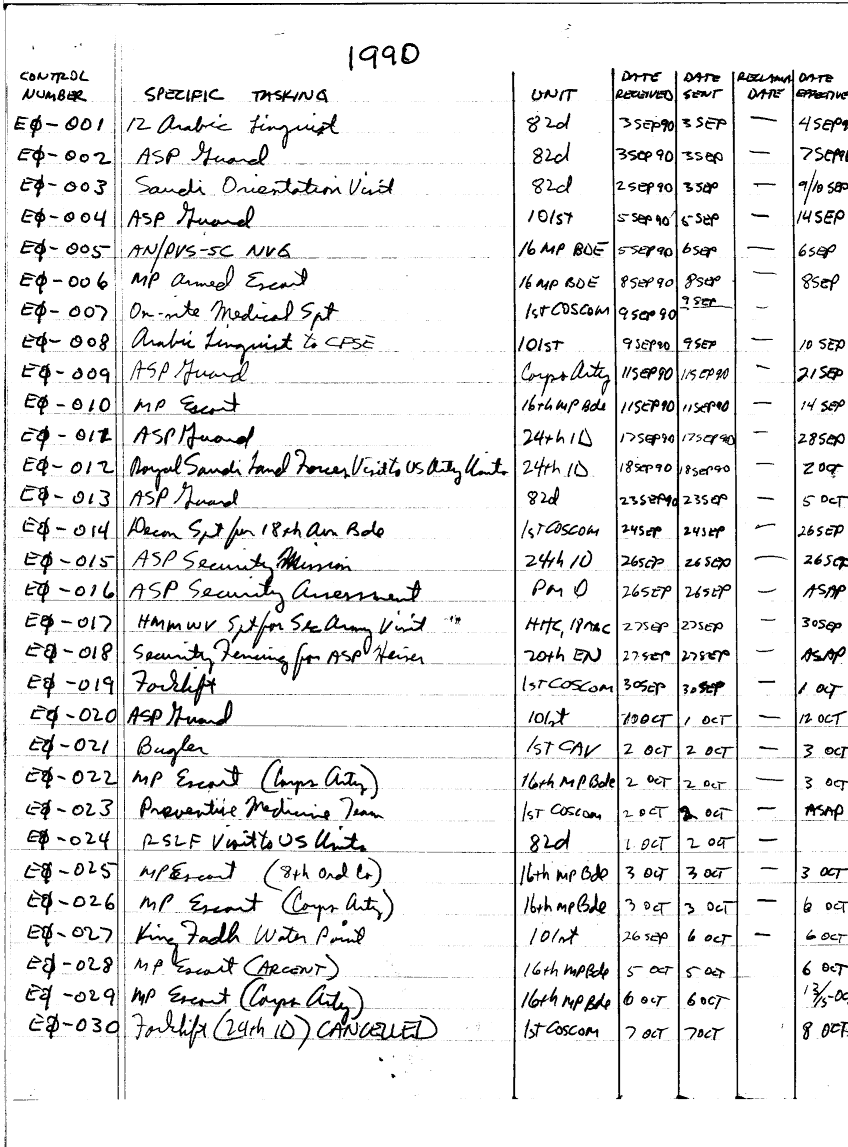 1990
CONTROL NUMBER SPECIFIC TASKING UNIT DATE RECEIVED DATE SENT RECLAMA DATE DATE EFFECTIVE
EØ-001 12 Arabic Linguist 82d 3SEP90 3SEP — 4SEP9
EØ-002 ASP Guard 82d 3SEP90 3SEP — 7SEP90
EØ-003 Saudi Orientation Visit 82d 2SEP90 3SEP — 9/10 SEP
EØ-004 ASP Guard 101st 5SEP90 5SEP — 14SEP
EØ-005 AN/PVS-5C NVG 16 MP BDE 5SEP90 6SEP — 6SEP
EØ-006 MP Armed Escort 16 MP BDE 8SEP90 8SEP — 8SEP
EØ-007 On-site Medical Spt 1st COSCOM 9SEP90 9SEP —
EØ-008 Arabic Linguist to CFSE 101st 9SEP90 9SEP — 10 SEP
EØ-009 ASP Guard Corps Arty 11SEP90 11SEP90 — 21 SEP
EØ-010 MP Escort 16th MP Bde 11SEP90 11SEP90 — 14 SEP
EØ-011 ASP Guard 24th ID 17SEP90 17SEP90 — 28SEP
EØ-012 Royal Saudi Land Forces Visit to US Arty Units 24th ID 18SEP90 18SEP90 — 2 OCT
EØ-013 ASP Guard 82d 23SEP90 23SEP — 5 OCT
EØ-014 Decon Spt for 18th Avn Bde 1st COSCOM 24SEP 24SEP — 26SEP
EØ-015 ASP Security Mission 24th ID 26SEP 26SEP — 26SEP
EØ-016 ASP Security Assessment PM O 26SEP 26SEP — ASAP
EØ-017 HMMWV Spt for Sec Army Visit HHC, 18 ABC 27SEP 27SEP — 30SEP
EØ-018 Security Fencing for ASP 20th EN 27SEP 27SEP — ASAP
EØ-019 Forklift 1st COSCOM 30SEP 30SEP — 1 OCT
EØ-020 ASP Guard 101st 1 OCT 1 OCT — 12 OCT
EØ-021 Bugler 1st CAV 2 OCT 2 OCT — 3 OCT
EØ-022 MP Escort (Corps Arty) 16th MP Bde 2 OCT 2 OCT — 3 OCT
EØ-023 Preventive Medicine Team 1st COSCOM 2 OCT 2 OCT — ASAP
EØ-024 RSLF Visit to US Units 82d 1 OCT 2 OCT —
EØ-025 MP Escort (8th Ord Co) 16th MP Bde 3 OCT 3 OCT — 3 OCT
EØ-026 MP Escort (Corps Arty) 16th MP Bde 3 OCT 3 OCT — 6 OCT
EØ-027 King Fadh Water Point 101st 26 SEP 6 OCT — 6 OCT
EØ-028 MP Escort (ARCENT) 16th MP Bde 5 OCT 5 OCT 6 OCT
EØ-029 MP Escort (Corps Arty) 16th MP Bde 6 OCT 6 OCT 13/15-OC
EØ-030 Forklift (24th ID) CANCELLED 1st COSCOM 7 OCT 7 OCT 8 OCT